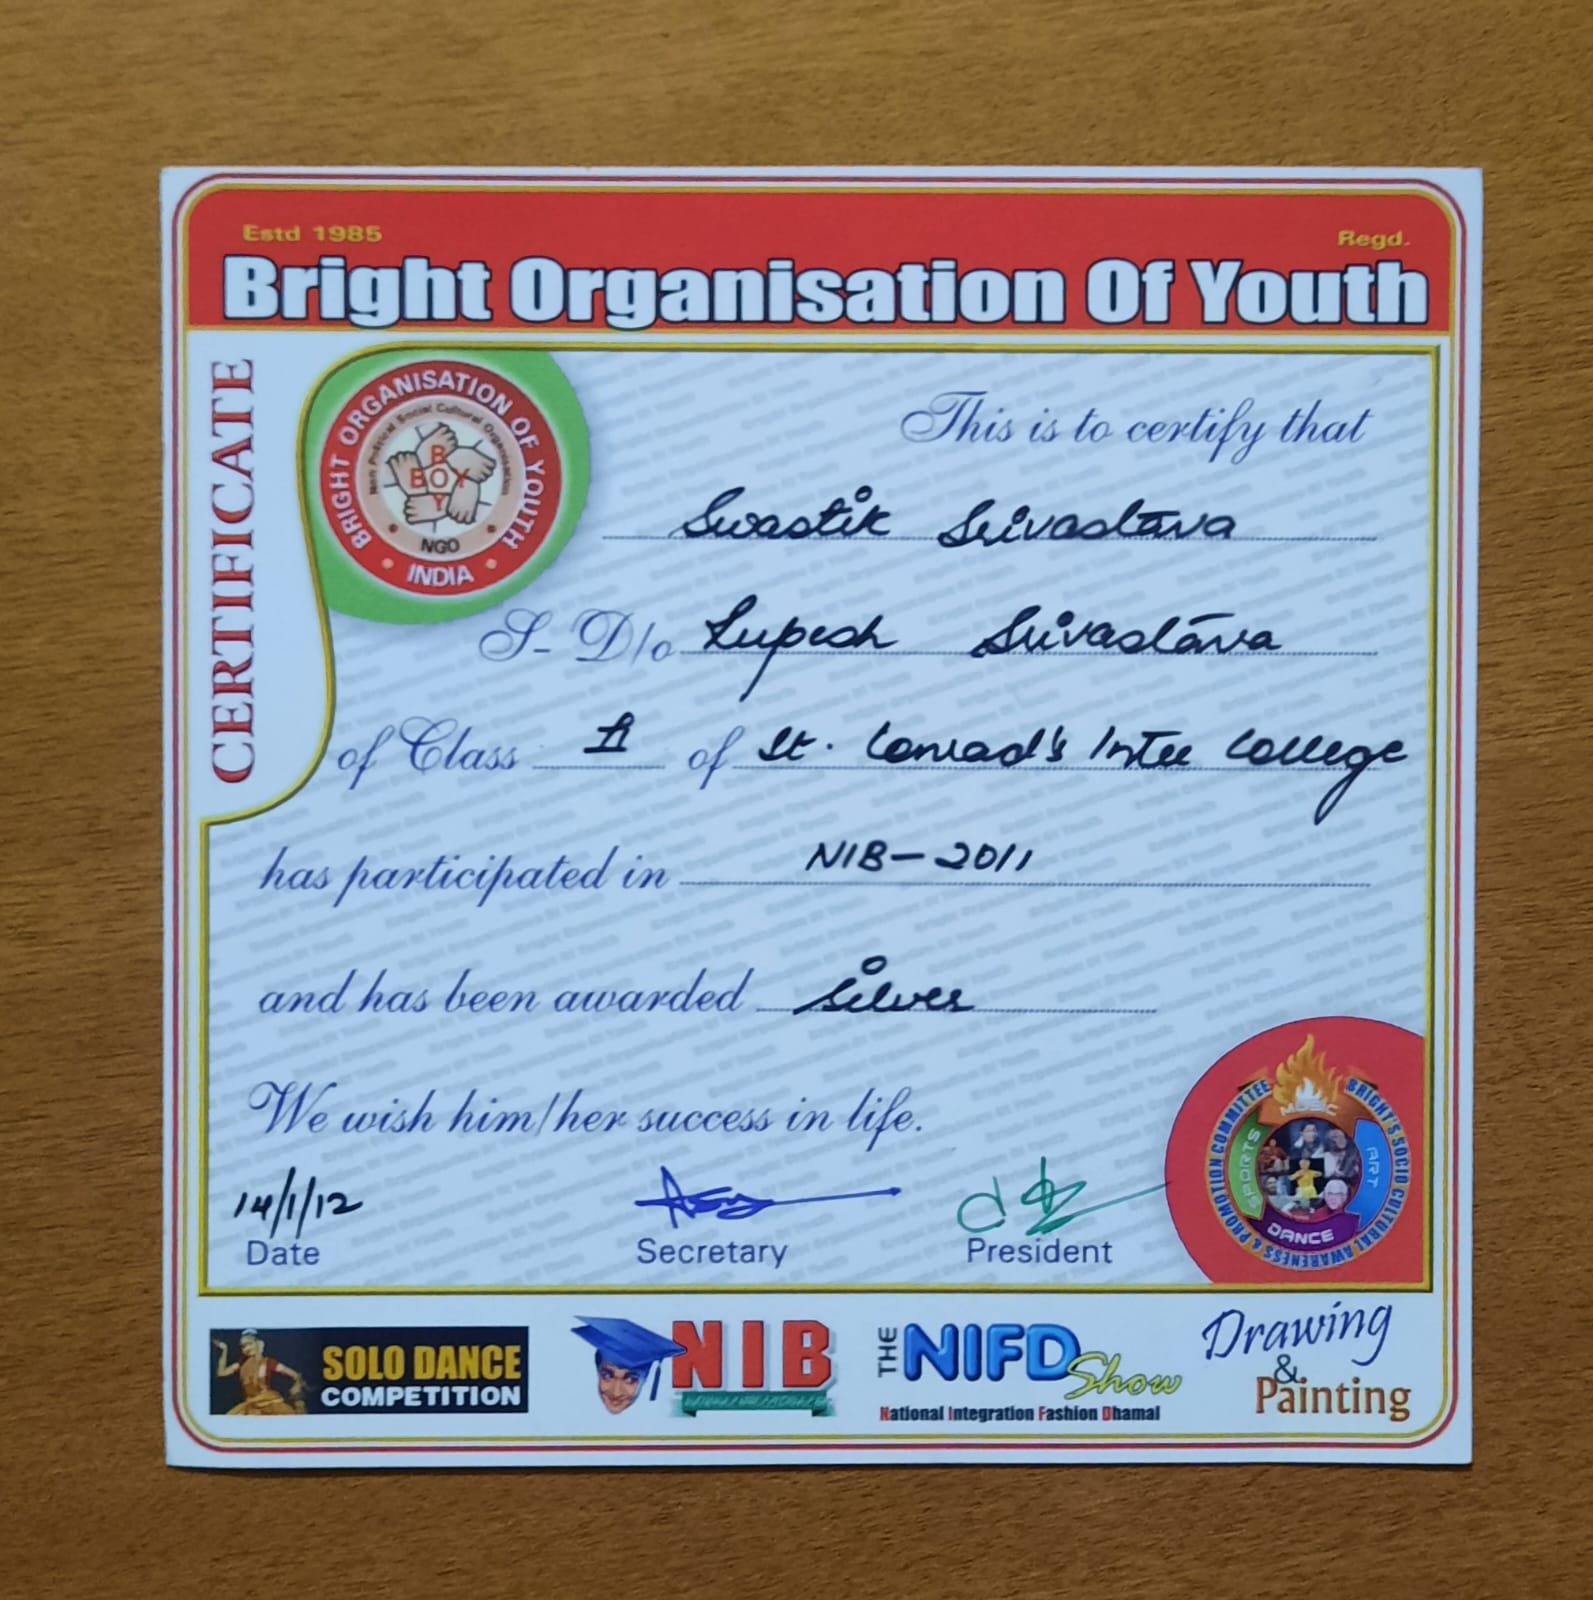 Estd 1985
Regd.
Bright Organisation Of Youth
CERTIFICATE
BRIGHT ORGANISATION OF YOUTH
Non Political Social Cultural Organisation
B
BOY
Y
NGO
INDIA
This is to certify that
Swastik Srivastava
S- D/o Lupesh Srivastava
of Class II of St. Conrad's Inter College
has participated in NIB-2011
and has been awarded Silver
We wish him/her success in life.
14/1/12
Date
Secretary
President
BRIGHT'S SOCIO CULTURAL AWARENESS & PROMOTION COMMITTEE
MUSIC
SPORTS
ART
DANCE
SOLO DANCE
COMPETITION
NIB
THE NIFD Show
National Integration Fashion Dhamal
Drawing
&
Painting